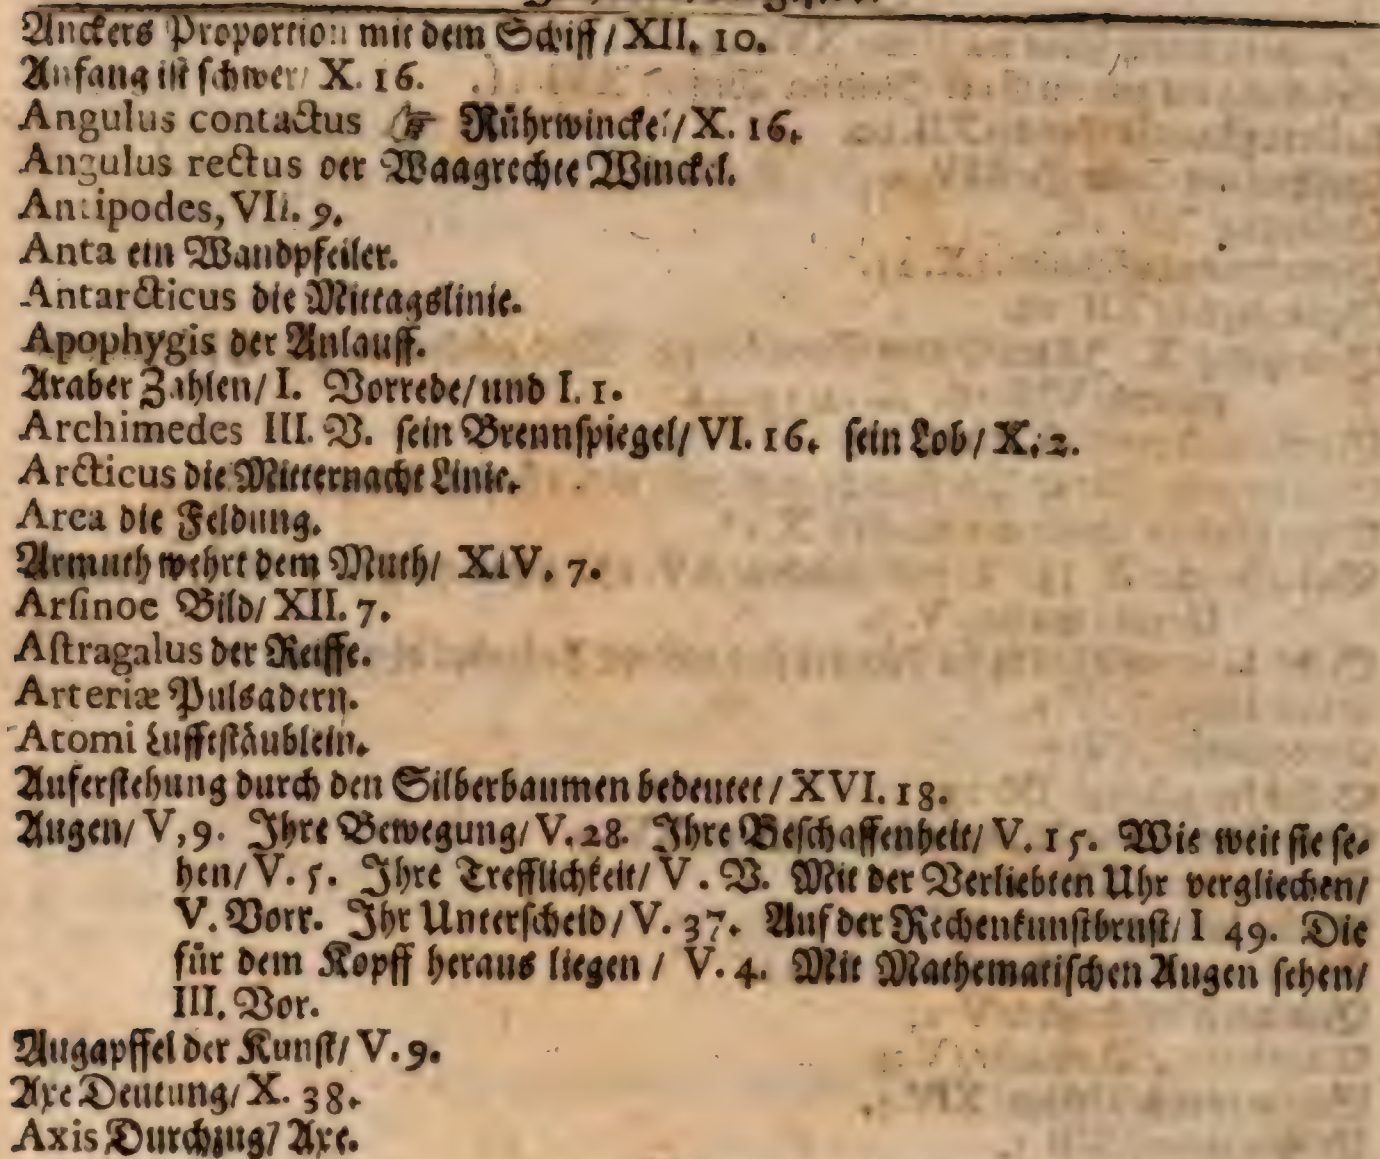 Anckers Proportion mit dem Schiff / XII. 10.
Anfang ist schwer / X. 16.
Angulus contactus ☞ Rührwinckel / X. 16.
Angulus rectus der Waagrechte Winckel.
Antipodes, VII. 9.
Anta ein Wandpfeiler.
Antarcticus die Mittagslinie.
Apophygis der Anlauff.
Araber Zahlen / I. Vorrede / und I. 1.
Archimedes III. V. sein Brennspiegel / VI. 16. sein Lob / X. 2.
Arcticus die Mitternacht Linie.
Area die Feldung.
Armuth wehrt dem Muth / XIV. 7.
Arsinoe Bild / XII. 7.
Astragalus der Reiffe.
Arteriæ Pulsadern.
Atomi Lufftstäublein.
Auferstehung durch den Silberbaumen bedeutet / XVI. 18.
Augen / V, 9. Ihre Bewegung / V. 28. Ihre Beschaffenheit / V. 15. Wie weit sie se-
hen / V. 5. Ihre Trefflichkeit / V. V. Mit der Verliebten Uhr vergliechen /
V. Vorr. Ihr Unterscheid / V. 37. Auf der Rechenkunstbrust / I 49. Die
für dem Kopff heraus liegen / V. 4. Mit Mathematischen Augen sehen /
III. Vor.
Augapffel der Kunst / V. 9.
Axe Deutung / X. 38.
Axis Durchzug / Axe.